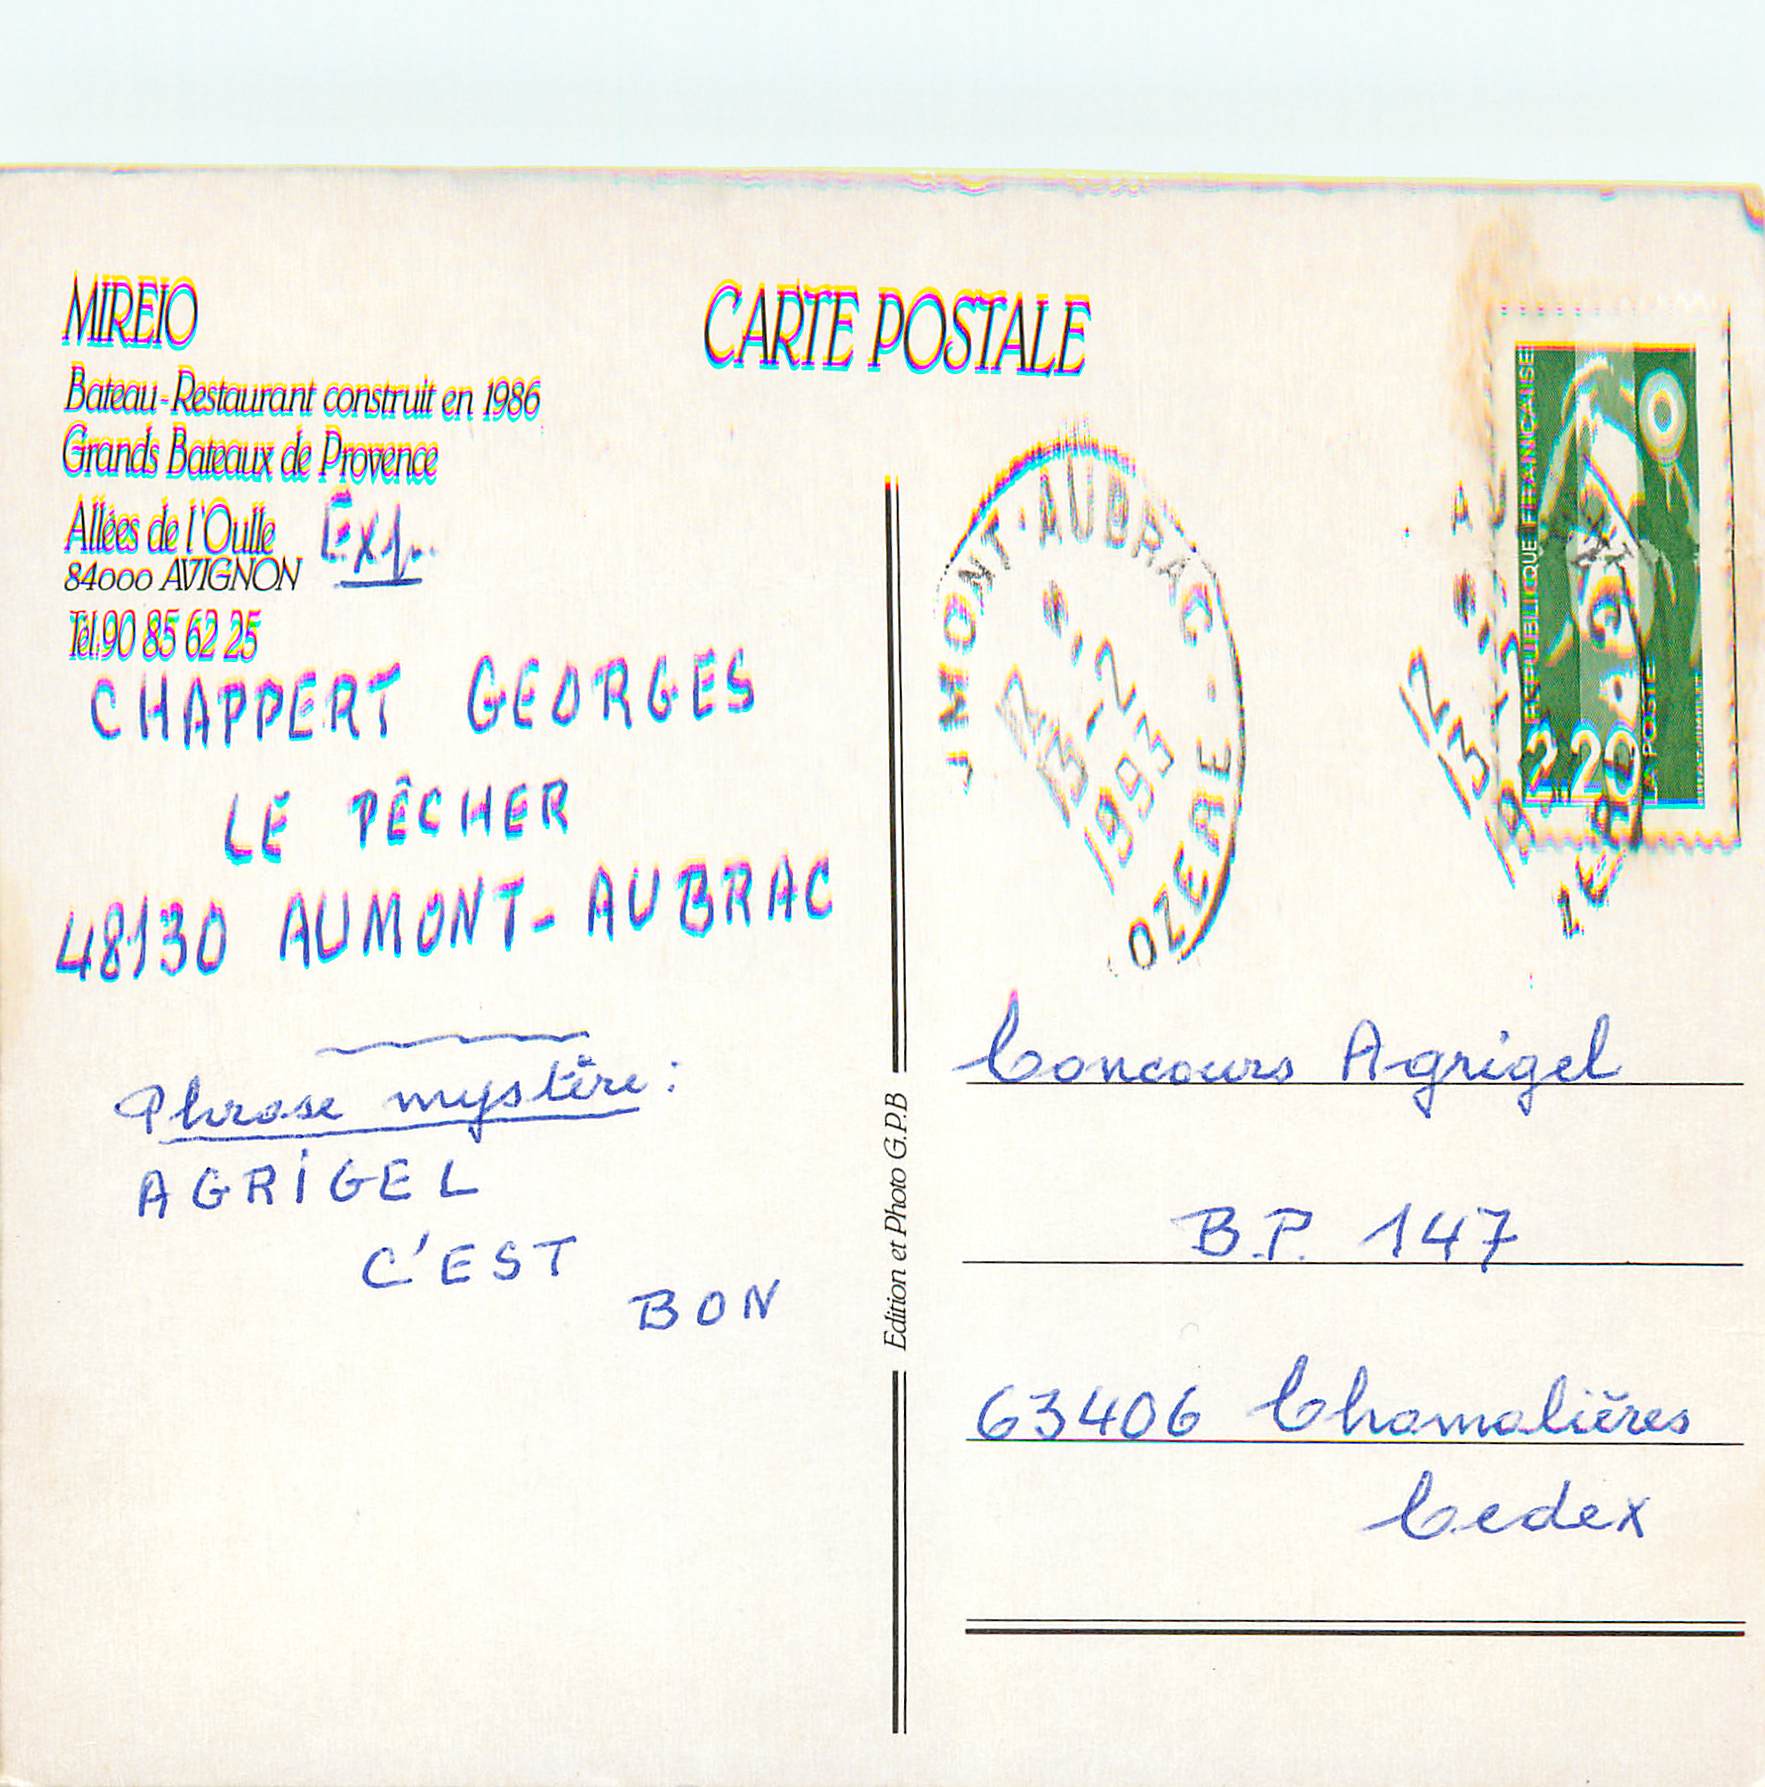 MIREIO
Bateau-Restaurant construit en 1986
Grands Bateaux de Provence
Allées de l'Oulle
84000 AVIGNON
Tél. 90 85 62 25
Exp.
CHAPPERT GEORGES
LE PÊCHER
48130 AUMONT-AUBRAC
Phrase mystère :
AGRIGEL
C'EST
BON
CARTE POSTALE
Edition et Photo G.P.B
UMONT-AUBRAC -
OZERE -
12
13-2
1993
REPUBLIQUE FRANCAISE
LA POSTE
2,20
12
13
Concours Agrigel
B.P. 147
63406 Chamalières
Cedex